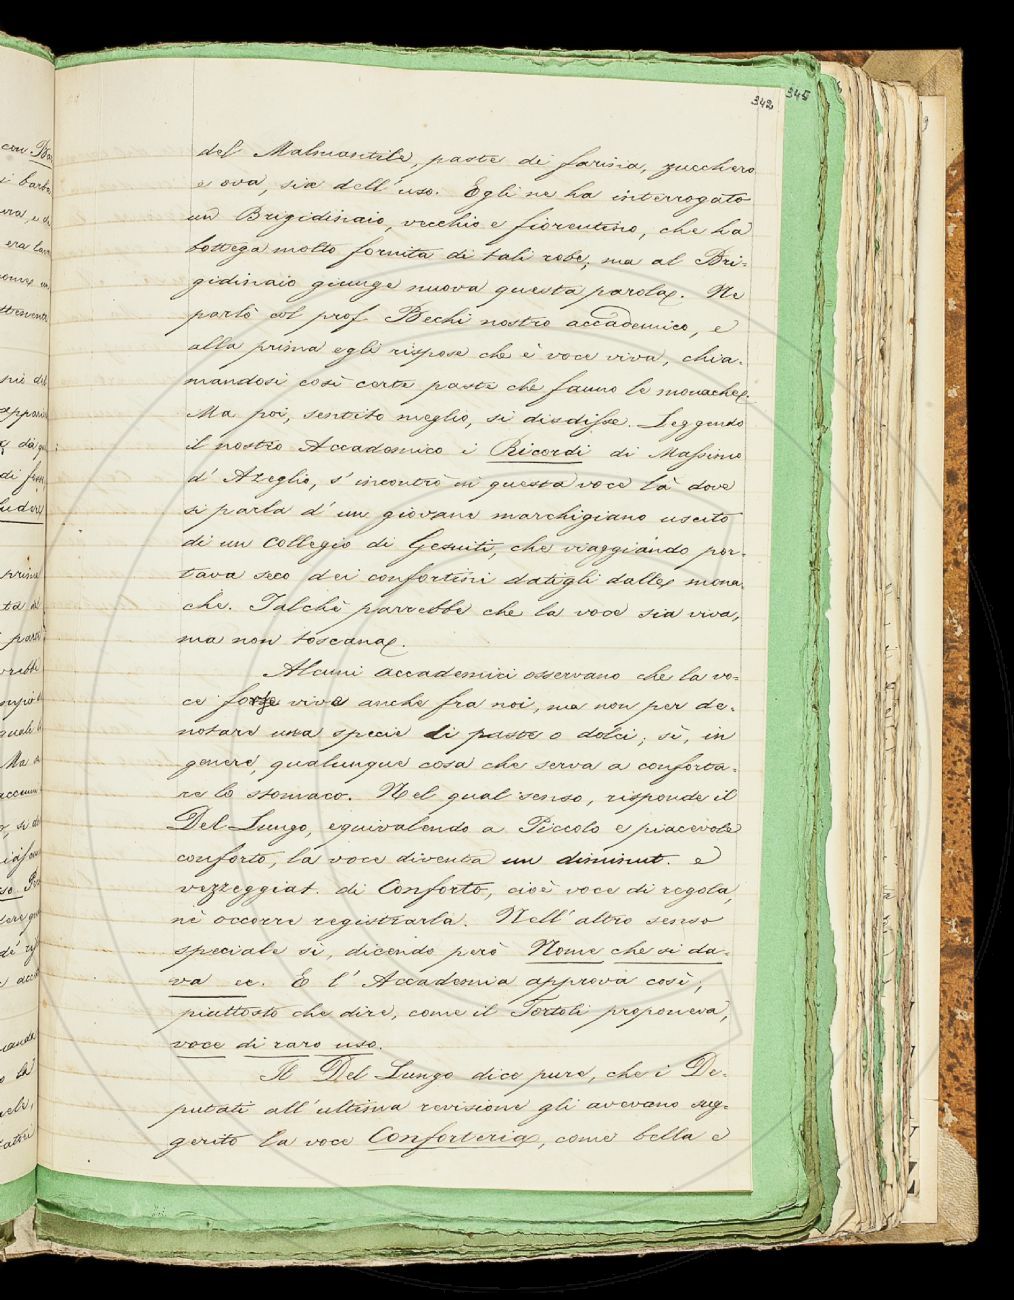 342 345
del Malmantile, paste di farina, zucchero
e ova, sia dell'uso. Egli ne ha interrogato
un Brigidinaio, vecchio e fiorentino, che ha
bottega molto fornita di tali robe; ma al Bri-
gidinaio giunge nuova questa parola. Ne
parlò col prof Bechi nostro accademico, e
alla prima egli rispose che è voce viva, chia-
mandosi così certe paste che fanno le monache.
Ma poi, sentito meglio, si disdisse. Leggendo
il nostro Accademico i Ricordi di Massimo
d'Azeglio, s'incontrò in questa voce là dove
si parla d'un giovane marchigiano uscito
di un collegio di Gesuiti, che viaggiando por-
tava seco dei confortini datigli dalle mona
che. Talchè parrebbe che la voce sia viva,
ma non toscana.
Alcuni accademici osservano che la vo-
ce forse vive anche fra noi, ma non per de-
notare una specie di paste o dolci; sì, in
genere, qualunque cosa che serva a conforta-
re lo stomaco. Nel qual senso, risponde il
Del Lungo, equivalendo a Piccolo e piacevole
conforto, la voce diventa un diminut. e
vezzeggiat. di Conforto, cioè voce di regola,
nè occorre registrarla. Nell'altro senso
speciale sì, dicendo però Nome che si da-
va ec. E l'Accademia approva così,
piuttosto che dire, come il Tortoli proponeva,
voce di raro uso.
Il Del Lungo dice pure, che i De-
putati all'ultima revisione gli avevano sug-
gerito la voce Conforteria, come bella e